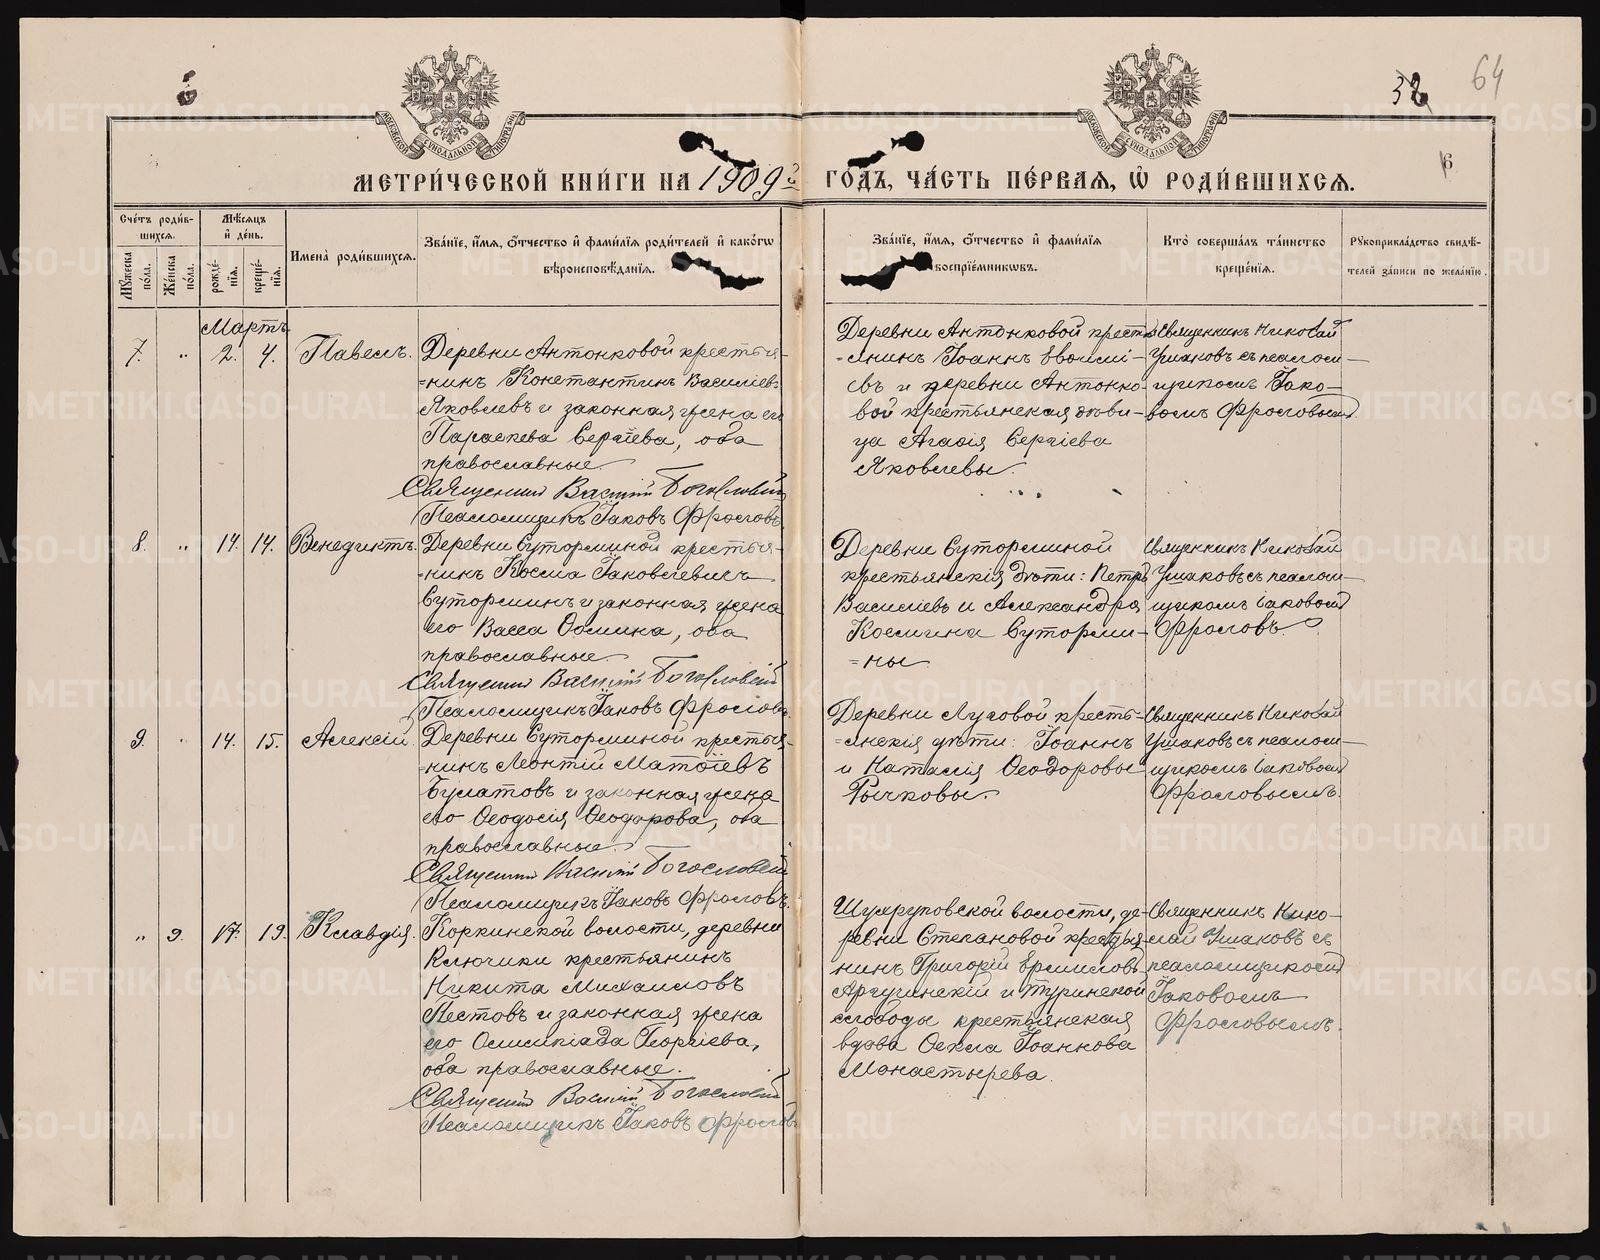 38
64
6
МЕТРИ́ЧЕСКОЙ КНИ́ГИ НА 1909й
ГО́ДЪ, ЧА́СТЬ ПЕ́РВАЯ, Ѡ҆ РОДИ́ВШИХСЯ.
Сче́тъ роди́в-
шихся.
Мѣ́сяцъ
и҆ де́нь.
Мꙋ́жеска
по́ла.
Же́нска
по́ла.
рожде́-
нїя.
креще́-
нїя.
Имена̀ роди́вшихся.
Зва́нїе, и҆́мя, ѻ҆́тчество и҆ фами́лїя роди́телей и҆ како́гѡ
вѣроисповѣ́данїя.
Зва́нїе, и҆́мя, ѻ҆́тчество и҆ фами́лїя
воспрїе́мникѡвъ.
Кто̀ соверша́лъ та́инство
креще́нїя.
Рꙋкоприкла́дство свидѣ́-
телей за́писи по жела́нїю.
Мартъ
7. " 2. 4. Павелъ.
Деревни Антонковой крестья-
=нинъ Константинъ Василіевъ
Яковлевъ и законная жена его
Параскева Сергіева, оба
православные.
Священникъ Василій Богословскій
Псаломщикъ Іаковъ Фроловъ
Деревни Антонковой кресть-
=янинъ Іоаннъ
въ и деревни Антонко-
вой крестьянская дѣви-
ца Агаѳія Сергіева
Яковлевы.
Священникъ Николай
Ушаковъ съ псалом-
щикомъ Іако-
вомъ Фроловымъ
8. " 14. 14. Венедиктъ.
Деревни Суторминой крестья-
=нинъ Косма Іаковлевичъ
Суторминъ и законная жена
его Васса Ѳомина, оба
православные.
Священникъ Василій Богословскій
Псаломщикъ Іаковъ Фроловъ.
Деревни Суторминой
крестьянскія дѣти: Петръ
Василіевъ и Александра
Космина Сутормин-
=ны
Священникъ Николай
Ушаковъ съ псалом-
щикомъ Іаковомъ
Фроловъ
9. " 14. 15. Алексій.
Деревни Суторминой крестья-
=нинъ Леонтій Матѳіевъ
Булатовъ и законная жена
его Ѳеодосія Ѳеодорова, оба
православные.
Священникъ Василій Богословскій
Псаломщикъ Іаковъ Фроловъ.
Деревни Луговой кресть-
=янскія дѣти: Іоаннъ
и Наталія Ѳеодоровы
Рычковы.
Священникъ Николай
Ушаковъ съ псалом-
щикомъ Іаковомъ
Фроловымъ.
" 9. 17. 19. Клавдія.
Коркинской волости, деревни
Ключики крестьянинъ
Никита Михаиловъ
Пестовъ и законная жена
его Олимпіада Георгіева,
оба православные.
Священникъ Василій Богословскій
Псаломщикъ Іаковъ Фроловъ
Шухруповской волости, де-
ревни Степановой крестья-
нинъ Григорій Ермиловъ
и Туринской
слободы крестьянская
вдова Ѳекла Іоаннова
Монастырева.
Священникъ Нико-
лай Ушаковъ съ
псаломщикомъ
Іаковомъ
Фроловымъ.